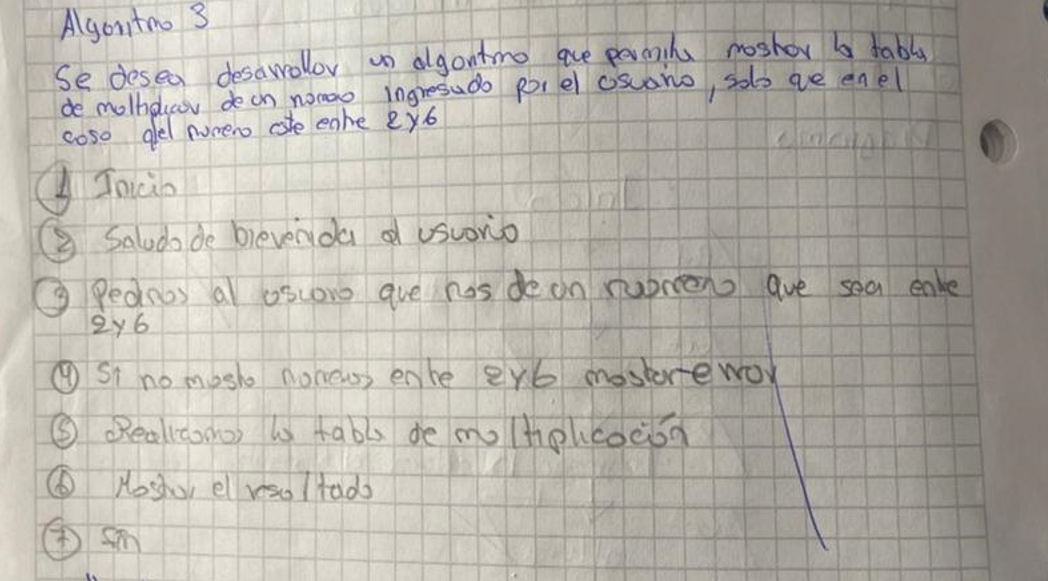 Algoritmo 3
Se desea desarrollar un algoritmo que permita mostrar la tabla
de multiplicar de un numero ingresado por el usuario, solo que en el
caso qel numero este entre 2 y 6
① Inicio
② Saludo de bievenida al usuario
③ Pedimos al usuario que nos de un numero que sea entre
2 y 6
④ Si no mostro numeros entre 2 y 6 mostar error
⑤ Realizamos la tabla de multiplicación
⑥ Mostrar el resultado
⑦ Fin